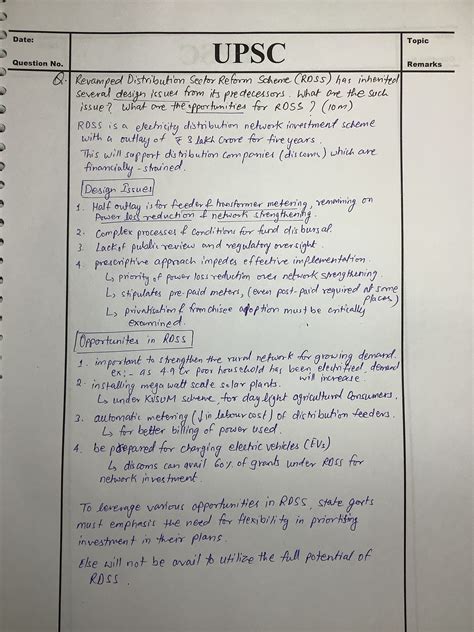 Date:
Question No.
UPSC
Topic
Remarks
Q. Revamped Distribution Sector Reform Scheme (RDSS) has inherited
several design issues from its predecessors. What are the such
issue? What are the opportunities for RDSS? (10m)
RDSS is a electricity distribution network investment scheme
with a outlay of ₹ 3 lakh crore for five years.
This will support distribution companies (discoms) which are
financially-strained.
Design Issues
1. Half outlay is for feeder & transformer metering, remaining on
Power loss reduction & network strengthening.
2. Complex processes & conditions for fund disbursal.
3. Lack of public review and regulatory oversight.
4. prescriptive approach impedes effective implementation.
↳ priority of power loss reduction over network strengthening.
↳ stipulates pre-paid meters, (even post-paid required at some
places)
↳ privatisation & franchisee adoption must be critically
examined.
Opportunites in RDSS
1. important to strengthen the rural network for growing demand.
ex:- as 4.9 cr poor household has been electrified, demand
will increase.
2. installing mega watt scale solar plants.
↳ under KUSUM scheme, for day light agricultural consumers.
3. automatic metering (↓ in labour cost) of distribution feeders.
↳ for better billing of power used.
4. be prepared for charging electric vehicles (EVs)
↳ discoms can avail 60% of grants under RDSS for
network investment.
To leverage various opportunities in RDSS, state govts
must emphasis the need for flexibility in prioritising
investment in their plans.
Else will not be avail to utilize the full potential of
RDSS.